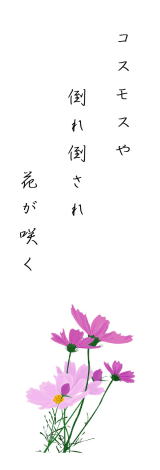 コスモスや
倒れ倒され
花が咲く